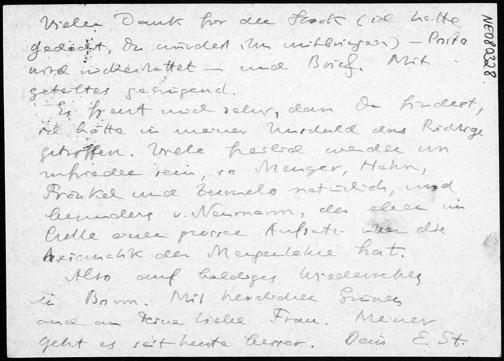 Vielen Dank für den Stock (ich hatte
gedacht, Du würdest ihn mitbringen) – Porto
wird rückerstattet – und Brief. Mit
geteiltes genügend.
Es freut mich sehr, dass Du findest,
ich hätte in meiner Unschuld das Richtige
getroffen. Viele freilich werden un
zufrieden sein, so Menger, Hahn,
Fränkel und Zermelo natürlich, und
besonders v. Neumann, der eben im
Crelle einen grossen Aufsatz über die
Axiomatik der Mengenlehre hat.
Also auf baldiges Wiedersehen
in Bonn. Mit herzlichen Grüssen
und an Deine liebe Frau. Meiner
geht es seit heute besser. Dein E. St.
NE080228.